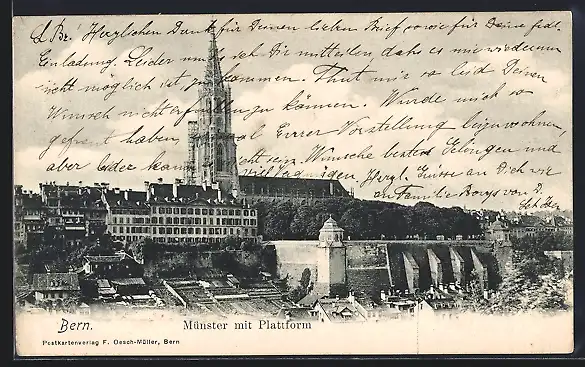 L. Br.! Herzlichen Dank für Deinen lieben Brief, sowie für Deine fedl.
Einladung. Leider muss ich Dir mitteilen dass es mir wiederum
nicht möglich ist zu kommen. Thut mir so leid Deinen
Wunsch nicht erfüllen zu können. Würde mich so
gefreut haben, mal Eurer Vorstellung beizuwohnen,
aber leider kann nicht sein. Wünsche bestes Gelingen und
Herzl. Grüsse an Dich wie
an Familie von D.
Bern. Münster mit Plattform
Postkartenverlag F. Oesch-Müller, Bern